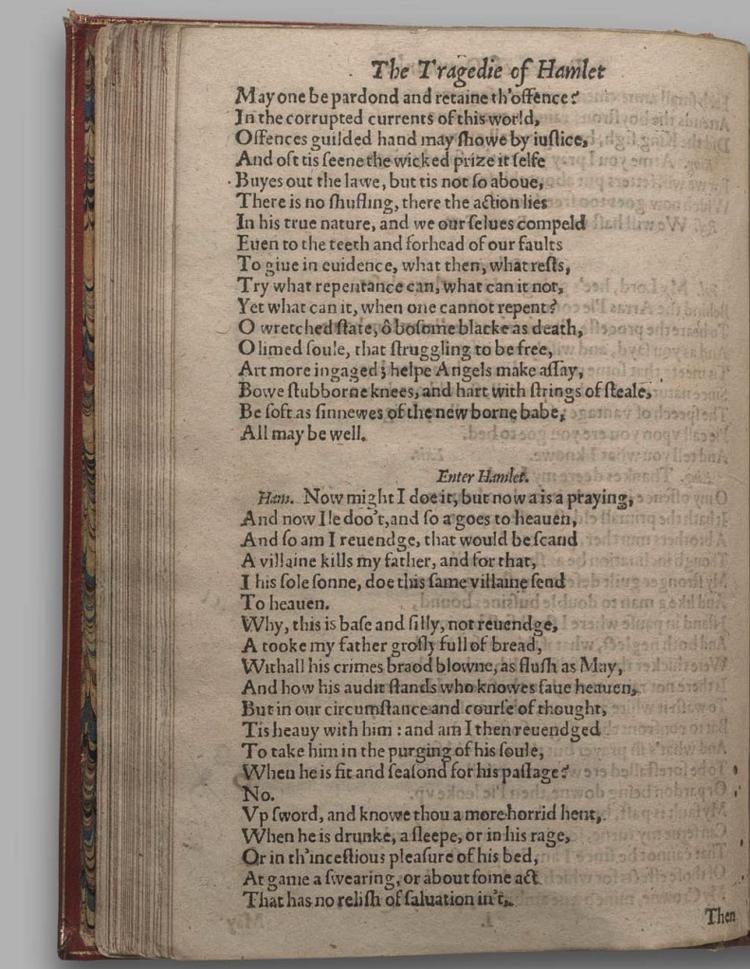 The Tragedie of Hamlet
May one be pardond and retaine th'offence?
In the corrupted currents of this world,
Offences guilded hand may ſhowe by iuſtice,
And oft tis ſeene the wicked prize it ſelfe
Buyes out the lawe, but tis not ſo aboue,
There is no ſhufling, there the action lies
In his true nature, and we our ſelues compeld
Euen to the teeth and forhead of our faults
To giue in euidence, what then, what reſts,
Try what repentance can, what can it not,
Yet what can it, when one cannot repent?
O wretched ſtate, ô boſome blacke as death,
O limed ſoule, that ſtruggling to be free,
Art more ingaged; helpe Angels make aſſay,
Bowe ſtubborne knees, and hart with ſtrings of ſteale,
Be ſoft as ſinnewes of the new borne babe,
All may be well.
Enter Hamlet.
Ham. Now might I doe it, but now a is a praying,
And now Ile doo't, and ſo a goes to heauen,
And ſo am I reuendge, that would be ſcand
A villaine kills my father, and for that,
I his ſole ſonne, doe this ſame villaine ſend
To heauen.
Why, this is baſe and ſilly, not reuendge,
A tooke my father groſly full of bread,
Withall his crimes braod blowne, as fluſh as May,
And how his audit ſtands who knowes ſaue heauen,
But in our circumſtance and courſe of thought,
Tis heauy with him : and am I then reuendged
To take him in the purging of his ſoule,
When he is fit and ſeaſond for his paſſage?
No.
Vp ſword, and knowe thou a more horrid hent,
When he is drunke, a ſleepe, or in his rage,
Or in th'inceſtious pleaſure of his bed,
At game a ſwearing, or about ſome act
That has no reliſh of ſaluation in't,
Then